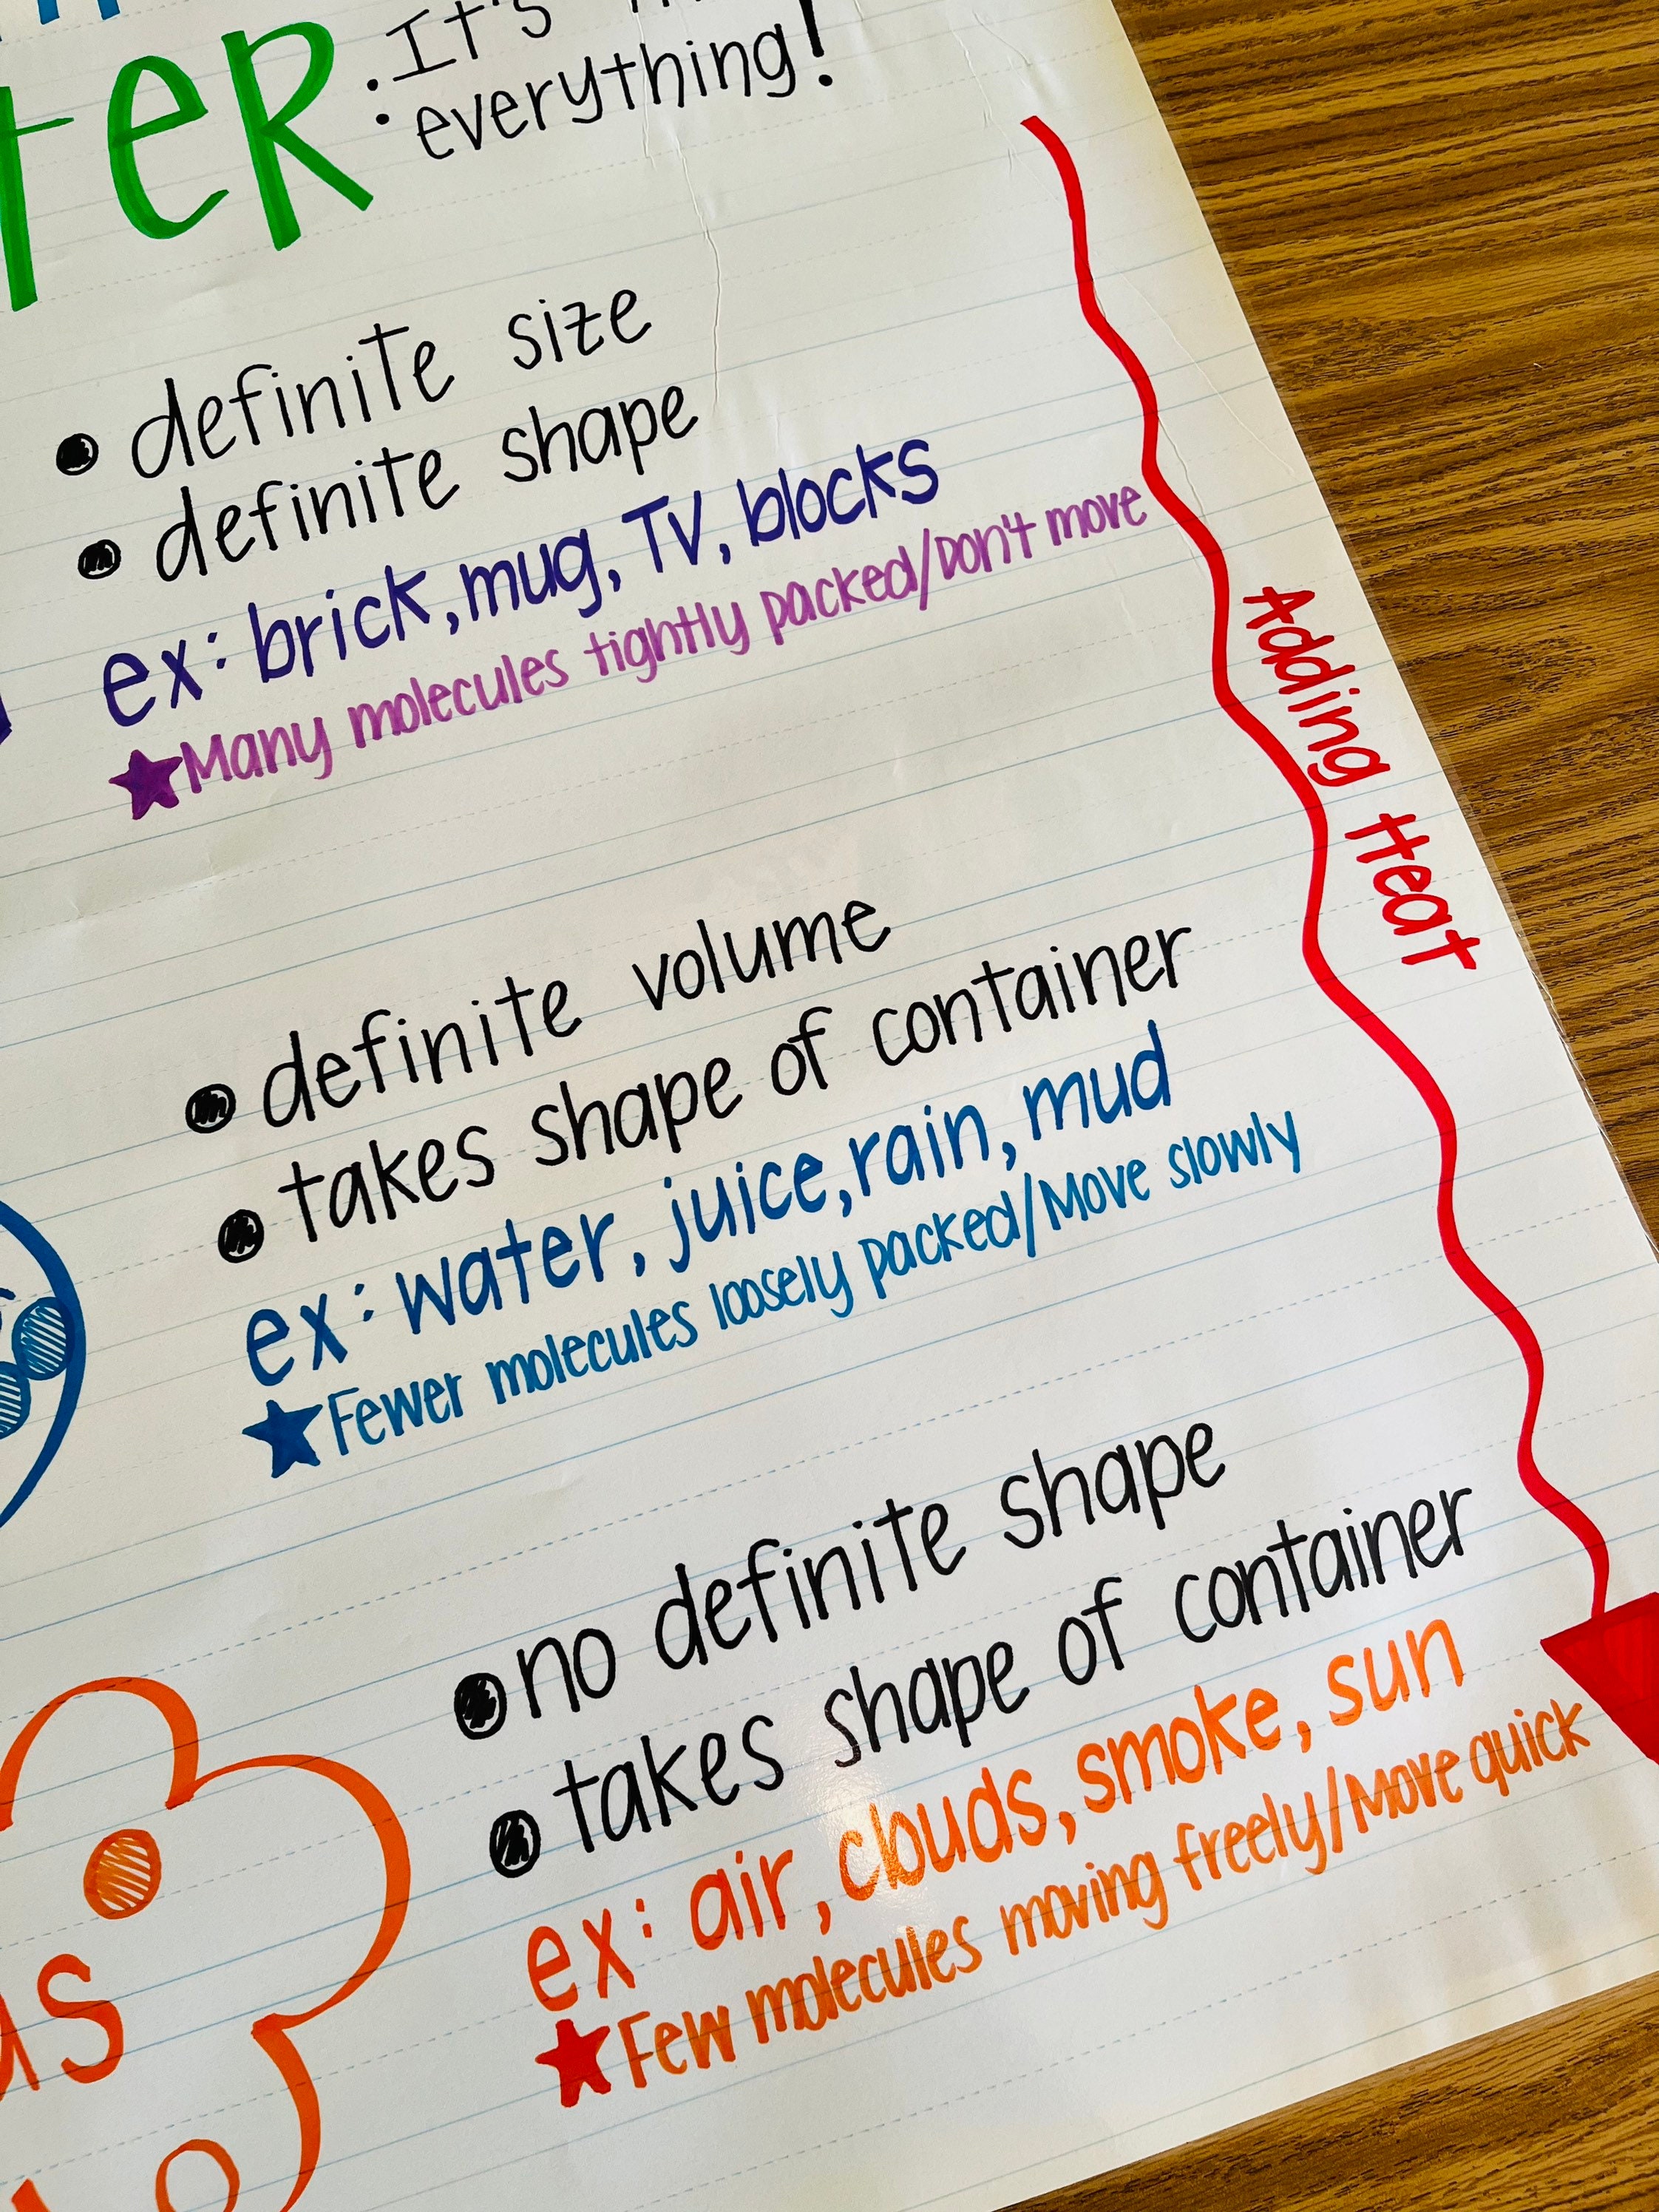 teR : It's
everything!
• definite size
• definite shape
ex: brick, mug, TV, blocks
★ Many molecules tightly packed/Don't move
Adding Heat
• definite volume
• takes shape of container
ex: water, juice, rain, mud
★ Fewer molecules loosely packed/Move slowly
• no definite shape
• takes shape of container
ex: air, clouds, smoke, sun
★ Few molecules moving freely/Move quick
as